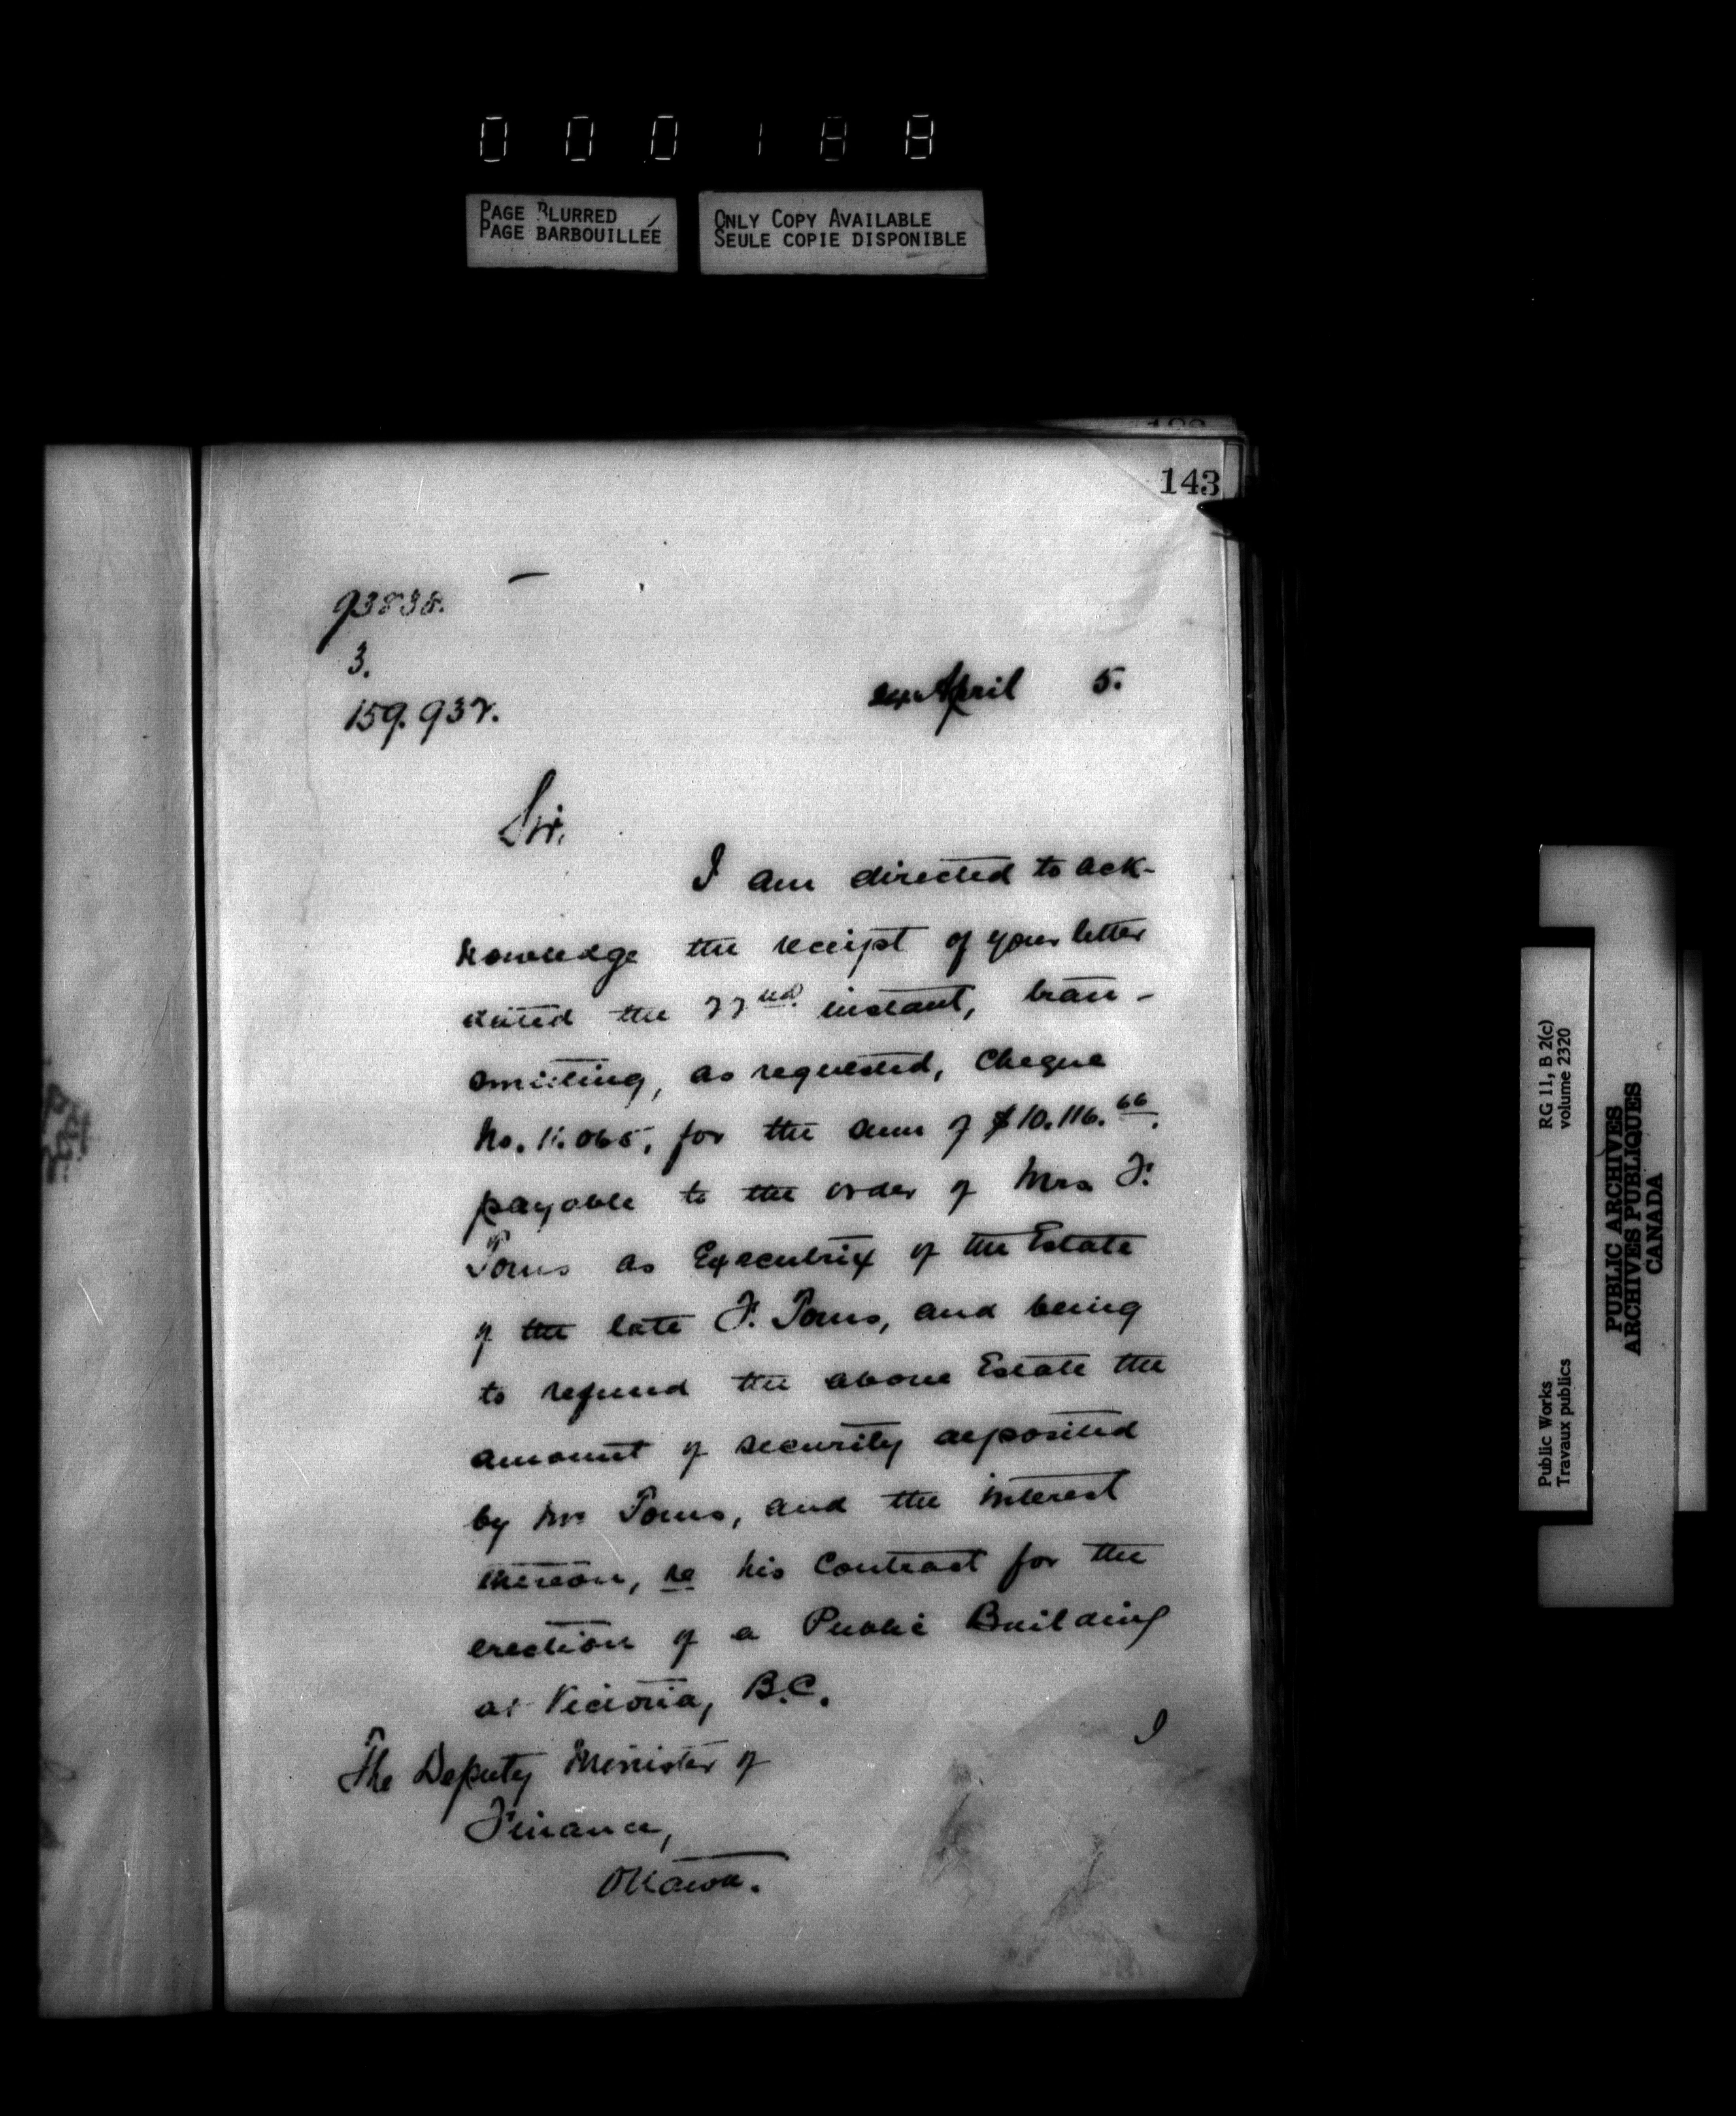 0 0 0 1 8 8
PAGE BLURRED
PAGE BARBOUILLÉE
ONLY COPY AVAILABLE
SEULE COPIE DISPONIBLE
143
93838.
3.
159.937.
April 5.
Sir,
I am directed to ack-
nowledge the receipt of your letter
dated the 22nd. instant, tran-
smitting, as requested, Cheque
No. 11.065, for the sum of $10.116.66.
payable to the order of Mrs F.
Toms as Executrix of the Estate
of the late F. Toms, and being
to refund the above Estate the
amount of security deposited
by Mr Toms, and the interest
thereon, re his Contract for the
erection of a Public Building
at Victoria, B.C.
I
The Deputy Minister of
Finance,
Ottawa.
Public Works
Travaux publics
RG 11, B 2(c)
volume 2320
PUBLIC ARCHIVES
ARCHIVES PUBLIQUES
CANADA